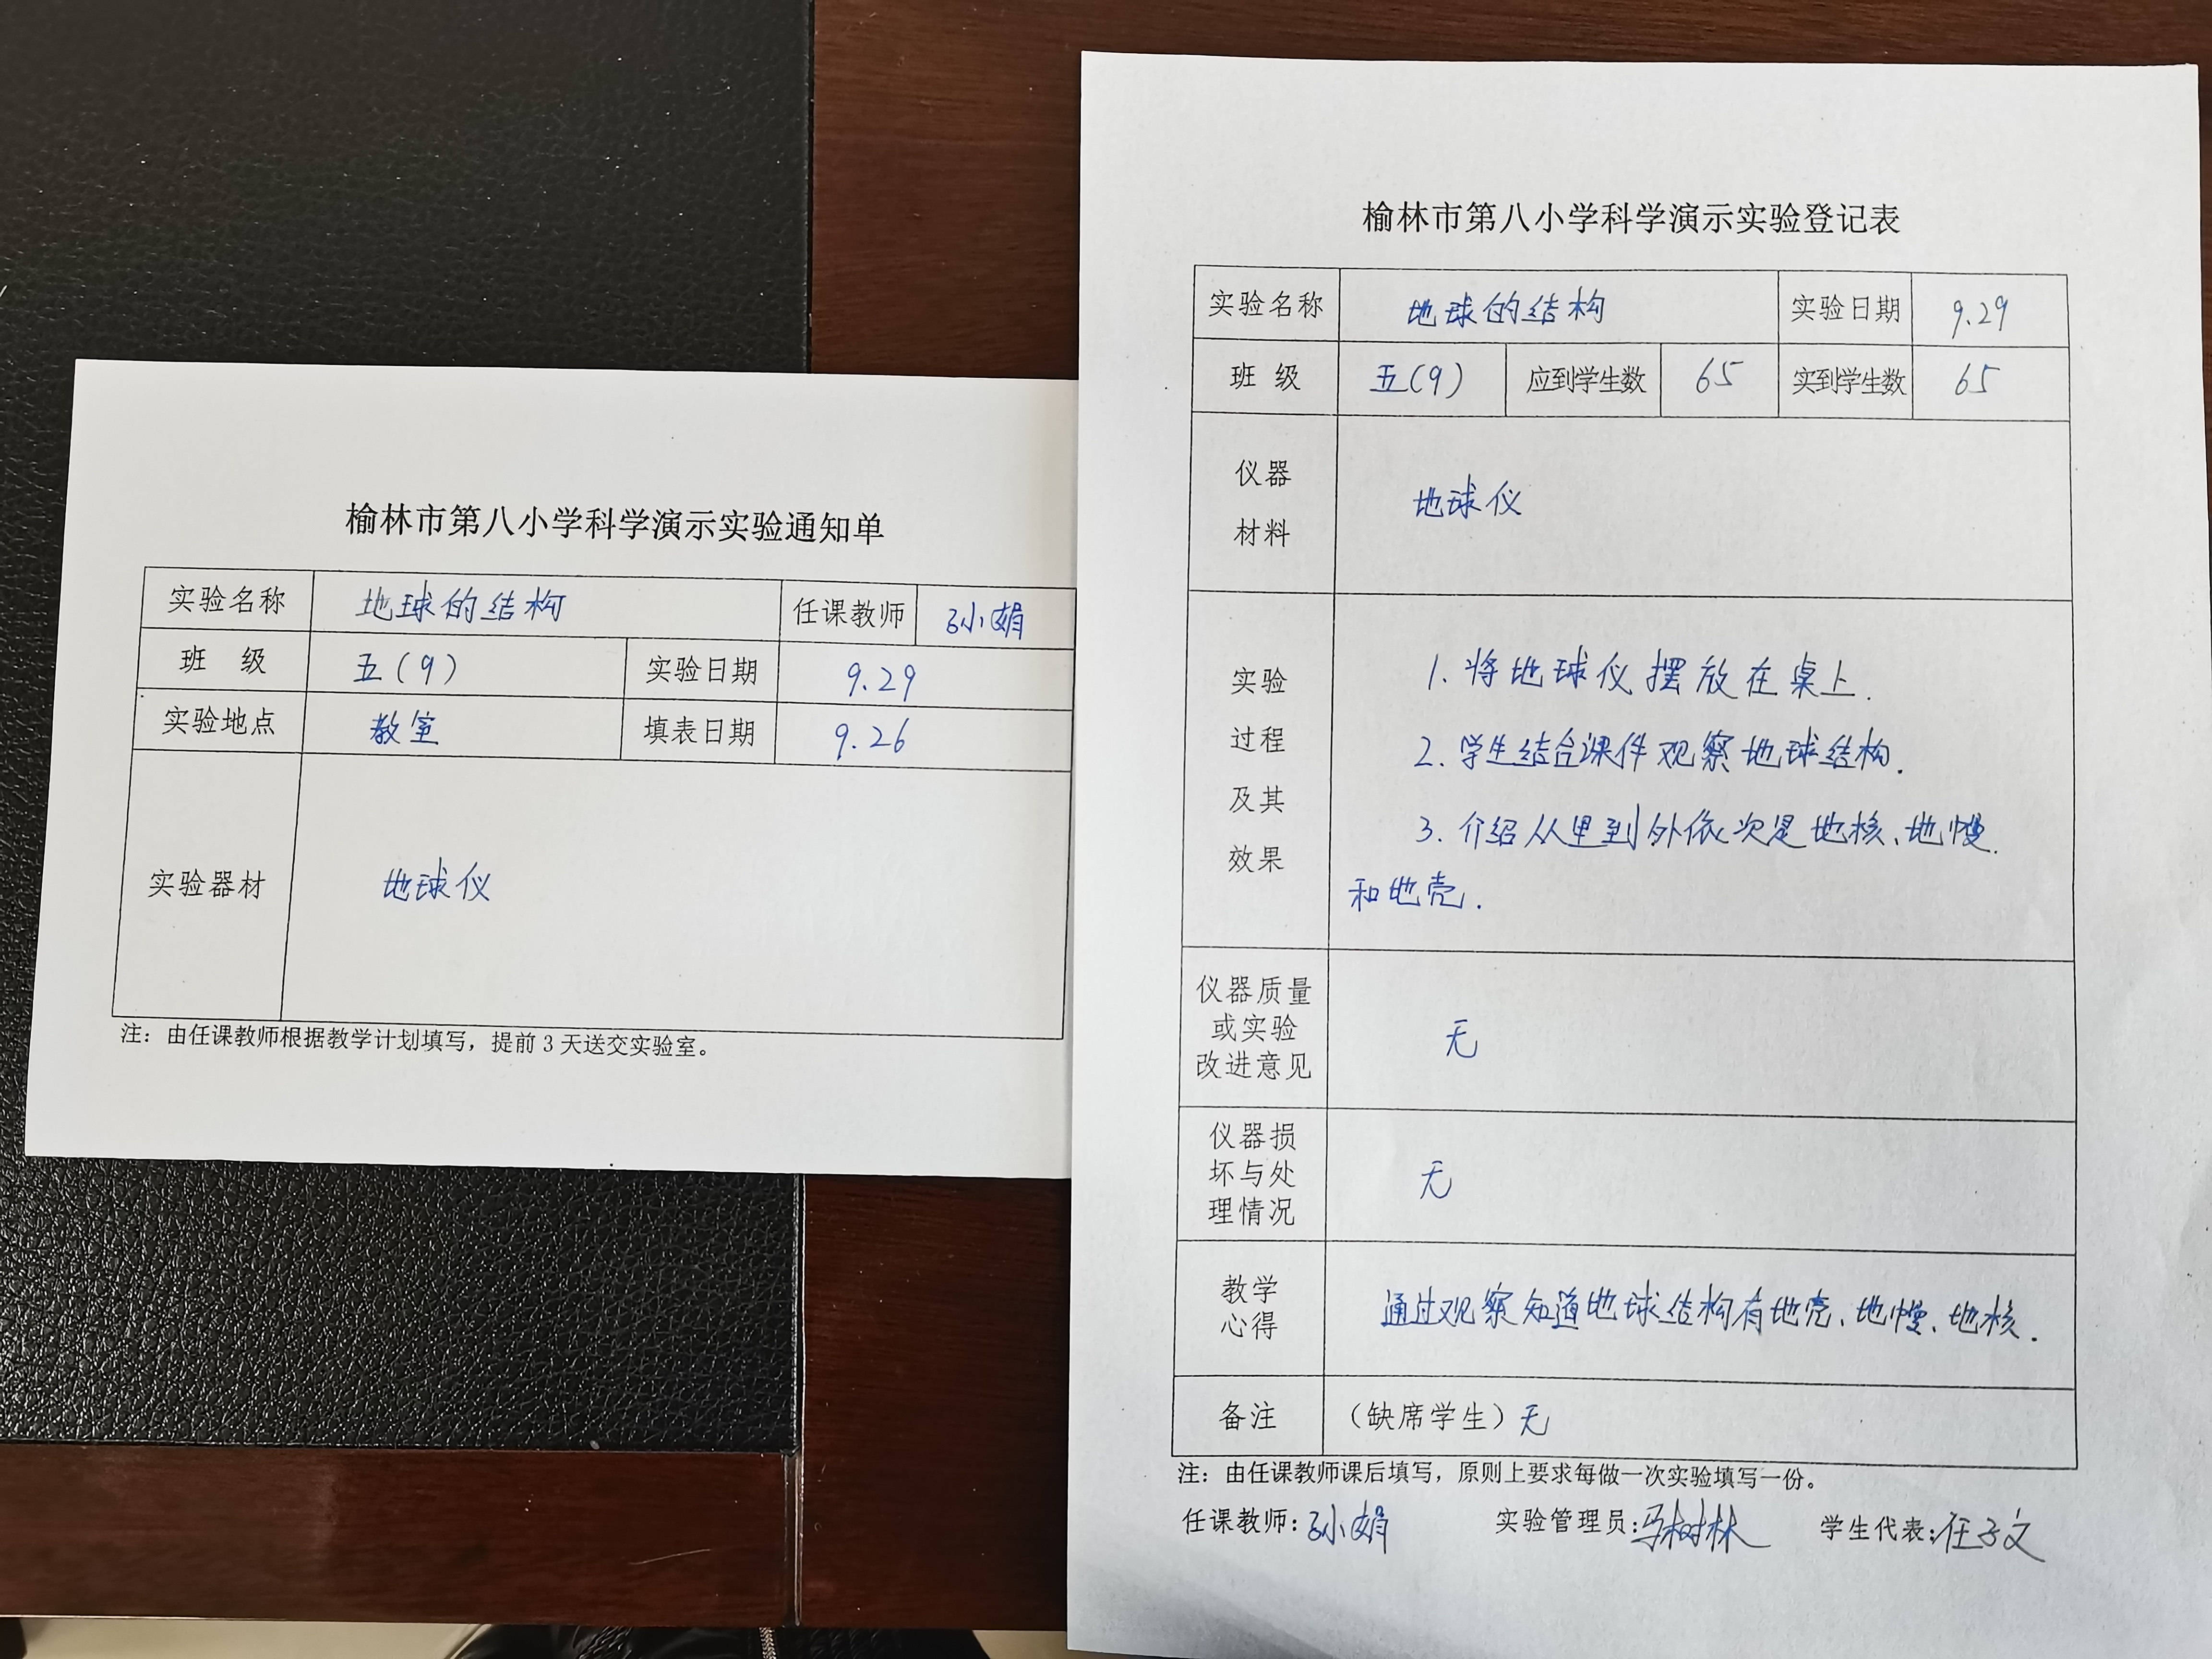 榆林市第八小学科学演示实验通知单
实验名称 地球的结构 任课教师 孙娟
班 级 五(9) 实验日期 9.29
实验地点 教室 填表日期 9.26
实验器材 地球仪
注：由任课教师根据教学计划填写，提前3天送交实验室。
榆林市第八小学科学演示实验登记表
实验名称 地球的结构 实验日期 9.29
班 级 五(9) 应到学生数 65 实到学生数 65
仪器
材料
地球仪
实验
过程
及其
效果
1. 将地球仪摆放在桌上.
2. 学生结合课件观察地球结构.
3. 介绍从里到外依次是地核、地慢.
和地壳.
仪器质量
或实验
改进意见
无
仪器损
坏与处
理情况
无
教学
心得
通过观察知道地球结构有地壳、地慢、地核.
备注 （缺席学生）无
注：由任课教师课后填写，原则上要求每做一次实验填写一份。
任课教师：孙娟 实验管理员：马树林 学生代表：任子文